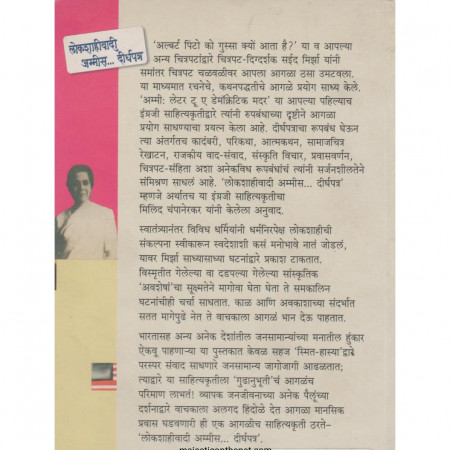 लोकशाहीवादी
अम्मीस... दीर्घपत्र
‘अल्बर्ट पिंटो को गुस्सा क्यों आता है?’ या व आपल्या
अन्य चित्रपटांद्वारे चित्रपट-दिग्दर्शक सईद मिर्झा यांनी
समांतर चित्रपट चळवळीवर आपला आगळा ठसा उमटवला.
या माध्यमात रचनेचे, कथनपद्धतीचे आगळे प्रयोग साध्य केले.
‘अम्मी: लेटर टू ए डेमॉक्रेटिक मदर’ या आपल्या पहिल्याच
इंग्रजी साहित्यकृतीद्वारे त्यांनी रुपबंधाच्या दृष्टीने आगळा
प्रयोग साधण्याचा प्रयत्न केला आहे. दीर्घपत्राचा रूपबंध घेऊन
त्या अंतर्गतच कादंबरी, परिकथा, आत्मकथन, सामाजचित्र
रेखाटन, राजकीय वाद-संवाद, संस्कृति विचार, प्रवासवर्णन,
चित्रपट-संहिता अशा अनेकविध रूपबंधांचं त्यांनी सर्जनशीलतेने
संमिश्रण साधलं आहे. ‘लोकशाहीवादी अम्मीस... दीर्घपत्र’
म्हणजे अर्थातच या इंग्रजी साहित्यकृतीचा
मिलिंद चंपानेरकर यांनी केलेला अनुवाद.
स्वातंत्र्यानंतर विविध धर्मियांनी धर्मनिरपेक्ष लोकशाहीची
संकल्पना स्वीकारून स्वदेशाशी कसं मनोभावे नातं जोडलं,
यावर मिर्झा साध्यासाध्या घटनांद्वारे प्रकाश टाकतात.
विस्मृतीत गेलेल्या वा दडपल्या गेलेल्या सांस्कृतिक
‘अवशेषां’चा सूक्ष्मतेने मागोवा घेता घेता ते समकालिन
घटनांचीही चर्चा साधतात. काळ आणि अवकाशाच्या संदर्भात
सतत मागेपुढे नेत ते वाचकाला आगळं भान देऊ पाहतात.
भारतासह अन्य अनेक देशांतील जनसामान्यांच्या मनातील हुंकार
ऐकवू पाहणाऱ्या या पुस्तकात केवळ सहज ‘स्मित-हास्या’द्वारे
परस्पर संवाद साधणारे जनसामान्य जागोजागी आढळतात;
त्याद्वारे या साहित्यकृतीला ‘गुढानुभूती’चं आगळंच
परिमाण लाभतं! व्यापक जनजीवनाच्या अनेक पैलूंच्या
दर्शनाद्वारे वाचकाला अलगद हिंदोळे देत आगळा मानसिक
प्रवास घडवणारी ही एक आगळीच साहित्यकृती ठरते–
‘लोकशाहीवादी अम्मीस... दीर्घपत्र’.
majesticonthenet.com